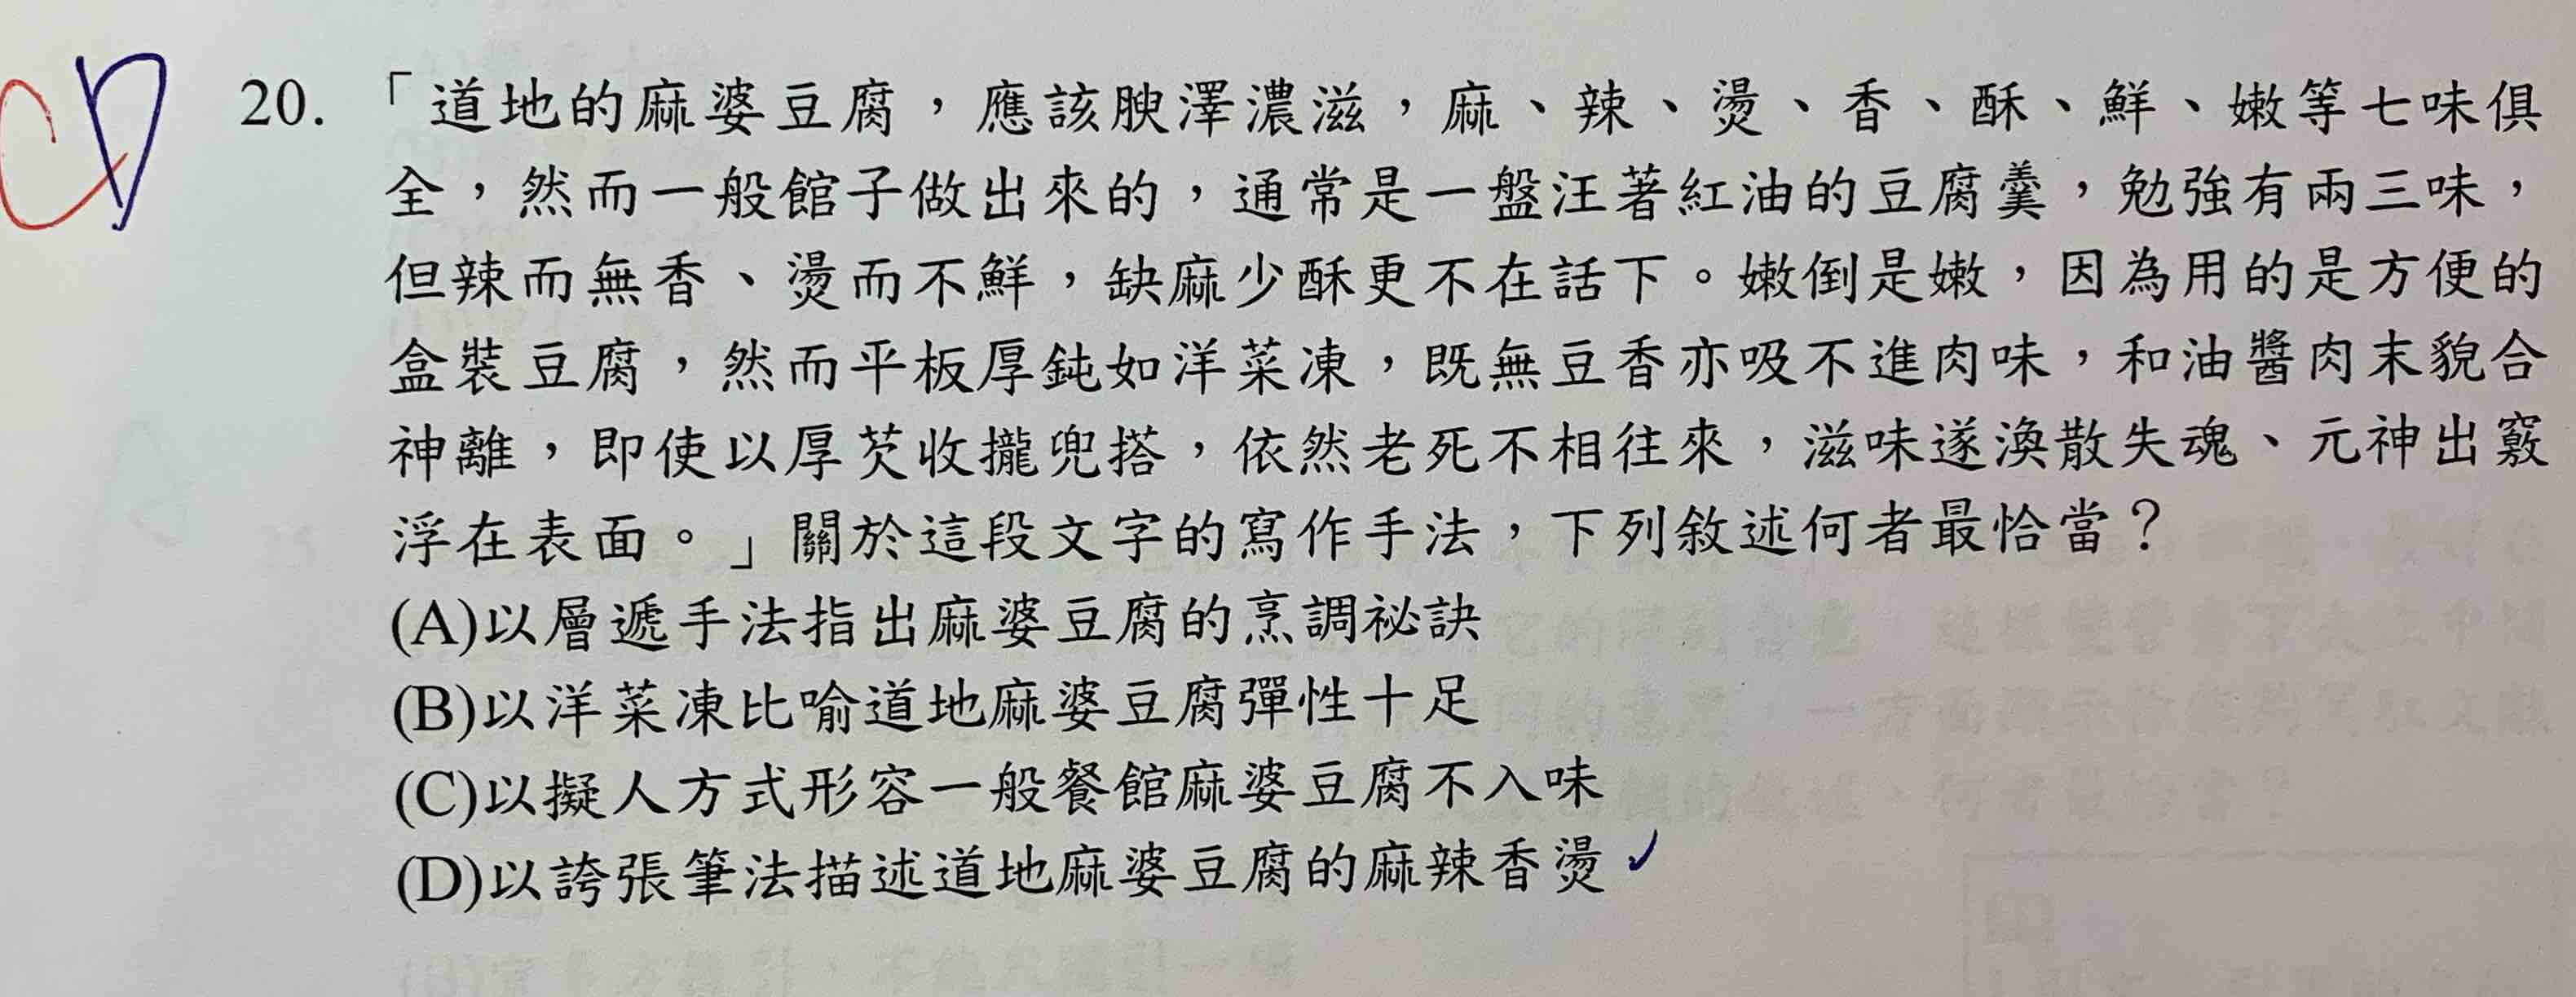 CD
20. 「道地的麻婆豆腐，應該腴澤濃滋，麻、辣、燙、香、酥、鮮、嫩等七味俱
全，然而一般館子做出來的，通常是一盤汪著紅油的豆腐羹，勉強有兩三味，
但辣而無香、燙而不鮮，缺麻少酥更不在話下。嫩倒是嫩，因為用的是方便的
盒裝豆腐，然而平板厚鈍如洋菜凍，既無豆香亦吸不進肉味，和油醬肉末貌合
神離，即使以厚芡收攏兜搭，依然老死不相往來，滋味遂渙散失魂、元神出竅
浮在表面。」關於這段文字的寫作手法，下列敘述何者最恰當？
(A)以層遞手法指出麻婆豆腐的烹調祕訣
(B)以洋菜凍比喻道地麻婆豆腐彈性十足
(C)以擬人方式形容一般餐館麻婆豆腐不入味
(D)以誇張筆法描述道地麻婆豆腐的麻辣香燙✓